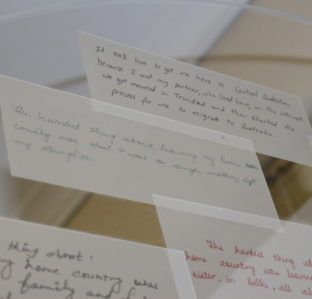 It took love to get me here to Central Australia
because I met my partner, who lived here, on the internet
We got married in Trinidad and then started the
process for me to migrate to Australia.
The hardest thing about leaving my home
country was that I was a single mother, left
my daughter
thing about
my home country was
family and
The hardest thing
home country was leaving
sister, in